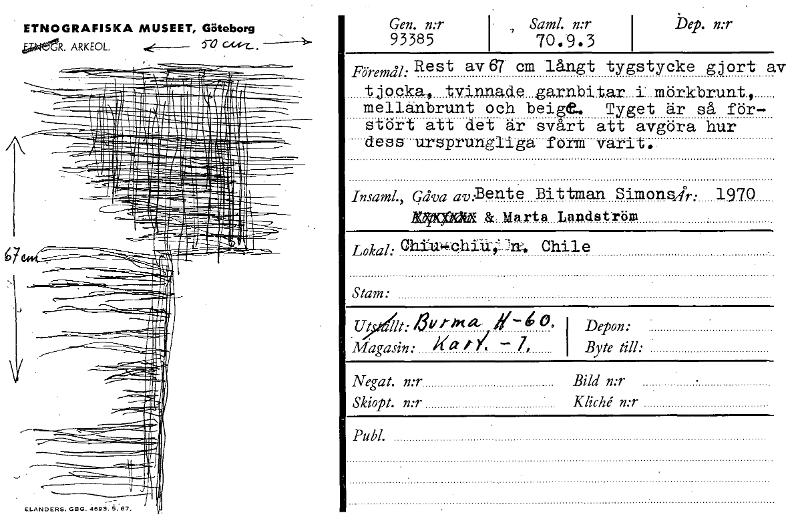 ETNOGRAFISKA MUSEET, Göteborg
ETNOGR. ARKEOL.
50 cm.
67 cm
ELANDERS, GBG. 4693. 5. 67.
Gen. n:r Saml. n:r Dep. n:r
93385 70.9.3
Föremål: Rest av 67 cm långt tygstycke gjort av
tjocka, tvinnade garnbitar i mörkbrunt,
mellanbrunt och beige. Tyget är så för-
stört att det är svårt att avgöra hur
dess ursprungliga form varit.
Insaml., Gåva av: Bente Bittman Simons År: 1970
& Marta Landström
Lokal: Chiu-chiu, n. Chile
Stam:
Utställt: Burma H-60. Depon:
Magasin: Kart. - 7. Byte till:
Negat. n:r Bild n:r
Skiopt. n:r Kliché n:r
Publ.